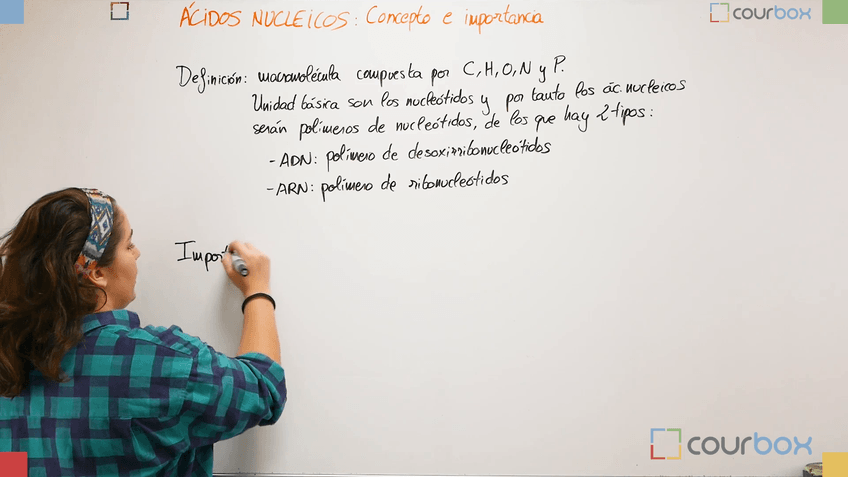 ÁCIDOS NUCLEICOS: Concepto e importancia
courbox
Definición: macromolécula compuesta por C, H, O, N y P.
Unidad básica son los nucleótidos y por tanto los ác. nucleicos
serán polímeros de nucleótidos, de los que hay 2 tipos:
- ADN: polímero de desoxirribonucleótidos
- ARN: polímero de ribonucleótidos
Import
courbox